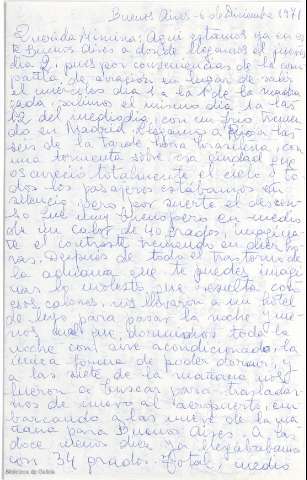 Buenos Aires - 6 de Diciembre 1971
Querida Minina: Aquí estamos ya en es
te Buenos Aires a donde llegamos el jueves
día 2, pues por conveniencias de la com
pañía, de aviación en lugar de salir
el miercoles día 1 a la 1 de la madru
gada, salimos el mismo día 1 a las
12 del mediodía, con un frío tremen
do en Madrid. Llegamos a Rio a las
seis de la tarde, hora brasileña, con
una tormenta sobre esa ciudad que
oscureció totalmente el cielo y to
dos los pasajeros estábamos en
silencio pero, por suerte el descen
so fué muy bueno pero en medio
de un calor de 40 grados, imagína
te el contraste tremendo en diez ho
ras. Después de todo el trastorno de
la aduana que te puedes imagi
nar lo molesto que resulta con
esos calores, nos llevaron a un hotel
de lujo para pasar la noche y me
nos mal que, dormimos toda la
noche con aire acondicionado, la
única forma de poder dormir, y
a las siete de la mañana nos
fueron a buscar para trasladar
nos de nuevo al aeropuerto, em
barcando a las nueve de la ma
ñana para Buenos Aires. A las
doce menos diez ya llegábamos
con 34 grados. Total, medio
Biblioteca de Galicia